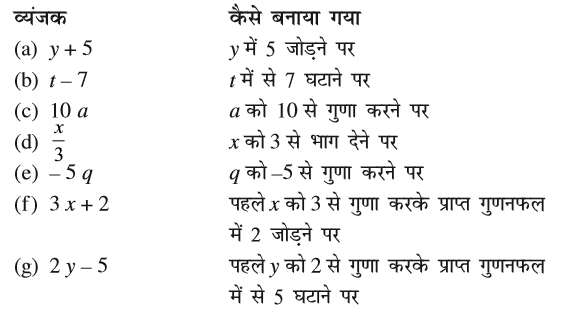 व्यंजक कैसे बनाया गया
(a) y + 5 y में 5 जोड़ने पर
(b) t – 7 t में से 7 घटाने पर
(c) 10 a a को 10 से गुणा करने पर
(d) x/3 x को 3 से भाग देने पर
(e) – 5 q q को –5 से गुणा करने पर
(f) 3 x + 2 पहले x को 3 से गुणा करके प्राप्त गुणनफल
में 2 जोड़ने पर
(g) 2 y – 5 पहले y को 2 से गुणा करके प्राप्त गुणनफल
में से 5 घटाने पर